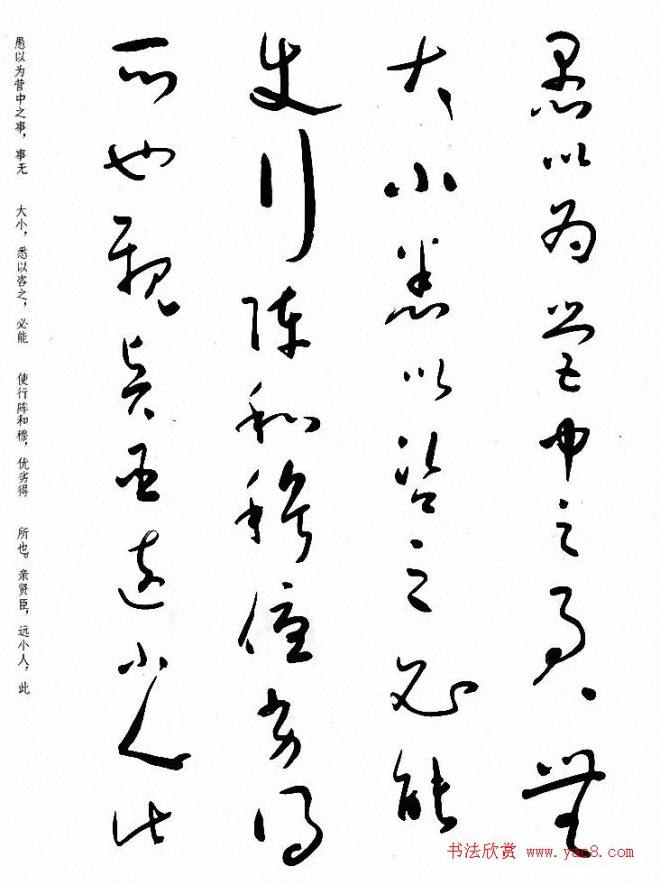 愚以为营中之事无
大小悉以咨之必能
使行陈和穆优劣得
所也亲贤臣远小人此
愚以为营中之事，事无
大小，悉以咨之，必能
使行阵和穆，优劣得
所也。亲贤臣，远小人，此
书法欣赏 www.yac8.com